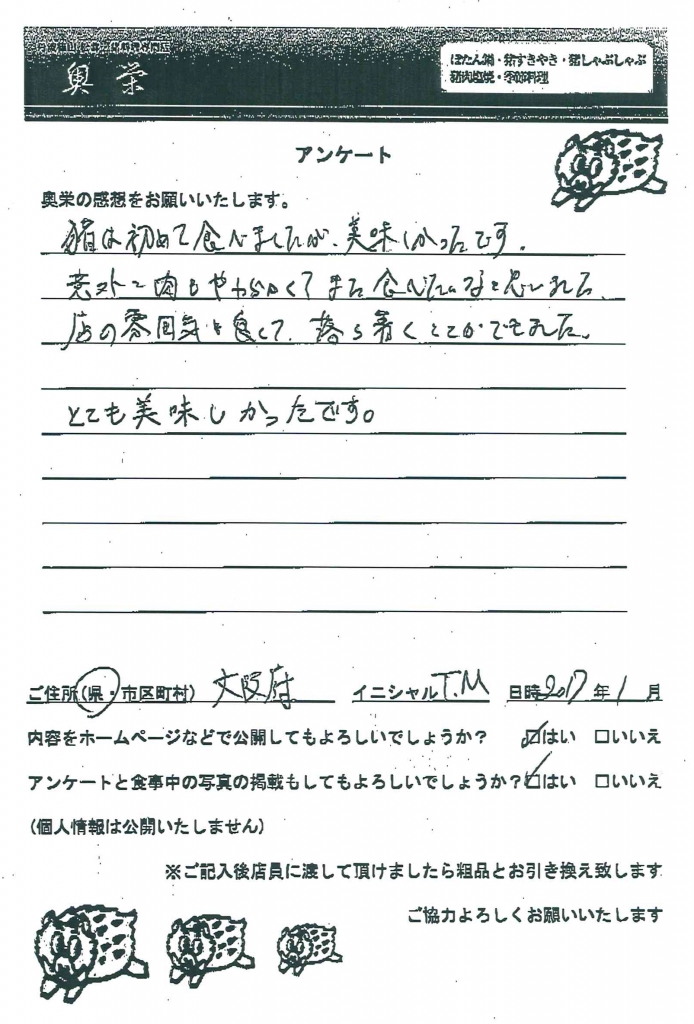 奥栄
ぼたん鍋・猪すきやき・猪しゃぶしゃぶ
猪肉塩焼・季節料理
アンケート
奥栄の感想をお願いいたします。
猪は初めて食べましたが、美味しかったです。
意外と肉もやわらかくてまた食べたいなと思いました。
店の雰囲気も良くて、落ち着くことができました。
とても美味しかったです。
ご住所(県・市区町村) 大阪府 イニシャル T.M 日時 2017 年 1 月
内容をホームページなどで公開してもよろしいでしょうか? ☑はい □いいえ
アンケートと食事中の写真の掲載もしてもよろしいでしょうか? ☑はい □いいえ
(個人情報は公開いたしません)
※ご記入後店員に渡して頂けましたら粗品とお引き換え致します
ご協力よろしくお願いいたします